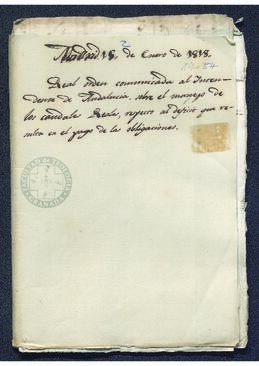 Madrid 18 de Enero de 1818.
Real orden comunicada al Inten-
dente de Andalucia, sobre el manejo de
los caudales Reales, respecto al deficit que re-
sulta en el pago de las obligaciones.